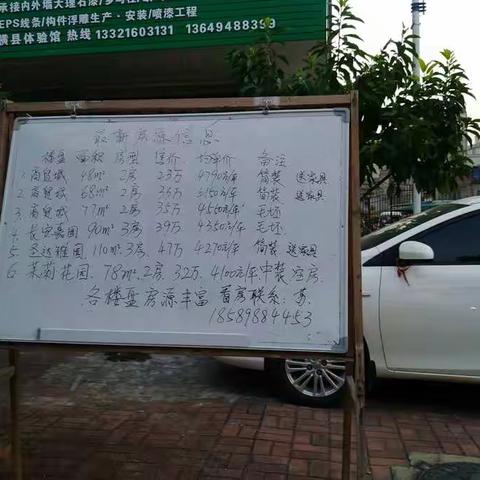 承接内外墙大理石漆/多彩
EPS线条/构件浮雕生产·安装/喷漆工程
横县体验馆 热线 13321603131 13649488399
最新房源信息
楼盘 面积 房型 售价 均单价 备注
1. 商贸城 48m² 2房 23万 4790元/㎡ 简装 送家具
2. 商贸城 68m² 2房 35万 5150元/㎡ 简装 送家具
3. 商贸城 77m² 2房 35万 4550元/㎡ 毛坯
4. 长安嘉园 90m² 3房 39万 4350元/㎡ 毛坯
5. 圣达雅园 110m² 3房 47万 4270元/㎡ 简装 送家具
6. 茉莉花园 78m² 2房 32万 4100元/㎡ 中装 空房
各楼盘房源丰富 看房联系:苏
18589884453